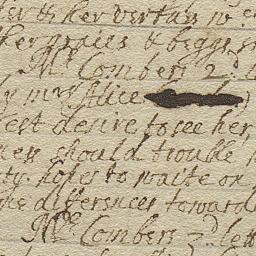 & her vertais w
praies & beggs
Mr Combers 2d
my mrs Alice
best desire to see her,
ness should trouble
ty. hopes to waite on
the differences toward
Mr Combers 3d lett